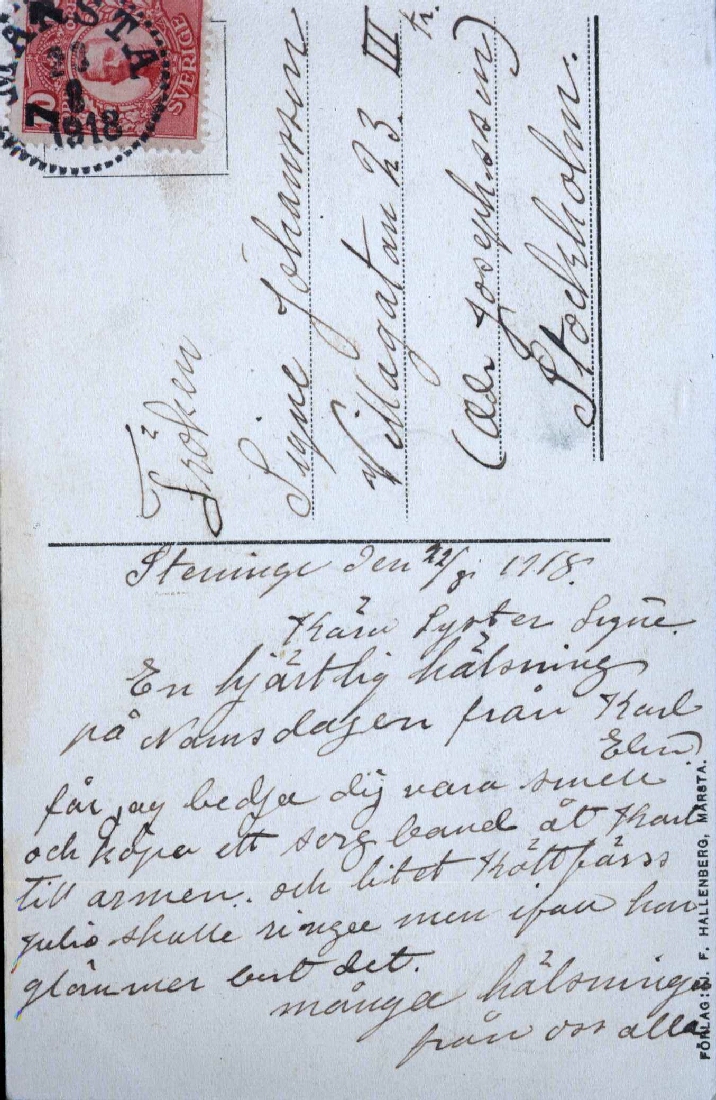 MÄRSTA
22
8
1918
SVERIGE
Fröken
Signe Johansson
Villagatan 23. III tr.
(adr Josephsson)
Stockholm.
Steninge den 22/8 1918.
Kära Syster Signe.
En hjärtlig hälsning
på Namsdagen från Karl
Elin
får jag bedja dig vara snell
och köpa ett sorgband åt Karl
till armen. och litet Köttfärss
Julia skulle ringa men ifall hon
glömmer bort det.
många hälsningar
från oss alla
FÖRLAG: F. HALLENBERG, MÄRSTA.